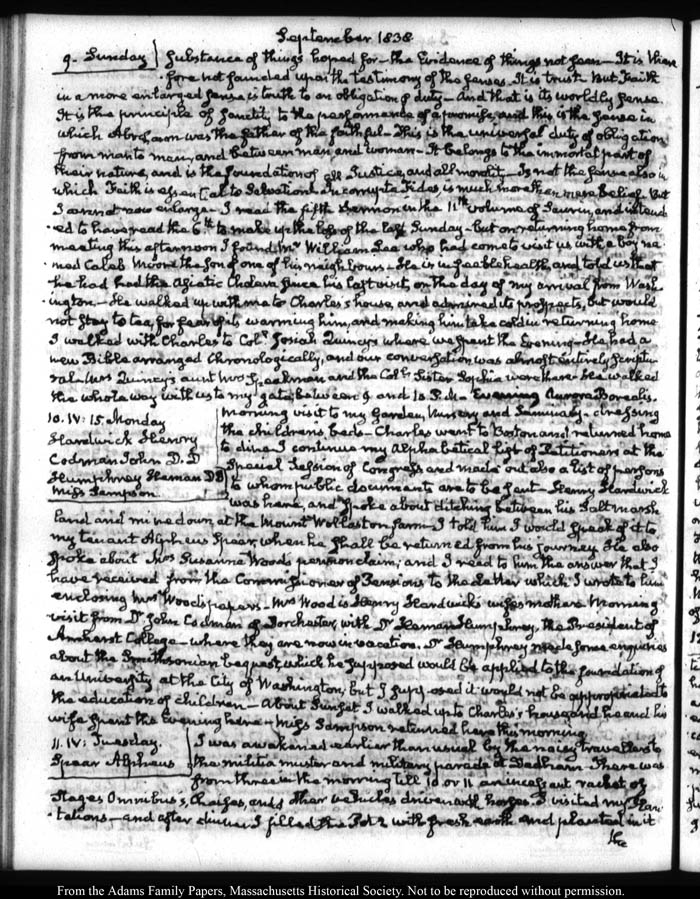 September 1838.
9. Sunday) Substance of things hoped for—the Evidence of things not seen—It is there
fore not founded upon the testimony of the senses. It is trust. But Faith
in a more enlarged sense is truth to an obligation of duty—And that is its worldly sense.
It is the principle of sanctity to the performance of a promise, and this is the sense in
which Abraham was the father of the faithful—This is the universal duty of obligation
from man to man, and between man and woman—It belongs to the immortal part of
their nature, and is the foundation of all Justice, and all morality—Is not the sense also in
which Faith is essential to Salvation. Incorrupta Fides is much more than mere belief. But
I cannot now enlarge—I read the fifth Sermon in the 11th volume of Saurin, and intend
ed to have read the 6th to make up the loss of the last Sunday—but on returning home from
meeting this afternoon I found Mr William Lee who had come to visit us with a boy na
med Caleb the son of one of his neighbours—He is in feeble health and told us that
he had had the Asiatic Cholera since his last visit, on the day of my arrival from Wash
ington—He walked up with me to Charles's house, and admired its prospects, but would
not stay to tea, for fear of its warming him, and making him take cold in returning home
I walked with Charles to Coll. Josiah Quincy's where we spent the Evening—He had a
new Bible arranged Chronologically, and our conversation was almost entirely Scriptu
ral—Mrs Quincy's aunt Mrs Speakman and the Coll's Sister Sophia were there—He walked
the whole way with us to my gate, between 9 and 10 P.M. Evening Aurora Borealis.
10. IV: 15. Monday
Hardwick Henry
Codman John D.D
Humphrey Heman DD
Miss Sampson
Morning visit to my Garden, Nursery and Seminary—dressing
the children's beds—Charles went to Boston and returned home
to dine—I continue my Alphabetical list of Petitioners at the
Special Session of Congress and made out also a list of persons
to whom public documents are to be sent—Henry Hardwick
was here, and spoke about ditching between his Salt marsh
land and mine down at the Mount Wollaston farm—I told him I would speak of it to
my tenant Alpheus Spear, when he shall be returned from his journey. He also
spoke about Mrs Susanna Wood's pension claim; and I read to him the answer that I
have received from the Commissioner of Pensions to the Letter which I wrote to him
enclosing Mrs Wood's papers—Mrs Wood is Henry Hardwick's wife's mother. Morning
visit from Dr John Codman of Dorchester, with Dr Heman Humphrey, the President of
Amherst College—where they are now in vacation. Dr Humphrey made some enquiries
about the Smithsonian bequest, which he supposed would be applied to the foundation of
an University at the City of Washington; but I supposed it would not be appropriated to
the education of children—About Sunset I walked up to Charles's house and he and his
wife spent the Evening here—Miss Sampson returned here this morning
11. IV: Tuesday.
Spear Alpheus
I was awakened earlier than usual by the noisy travellers to
the militia muster and military parade at Dedham. There was
from three in the morning till 10 or 11 an incessant racket of
Stages Omnibus's, Chaises, and other vehicles driven with horses. I visited my Plan
tations—and after dinner I filled the Pot 2 with fresh earth and planted in it
the
From the Adams Family Papers, Massachusetts Historical Society. Not to be reproduced without permission.